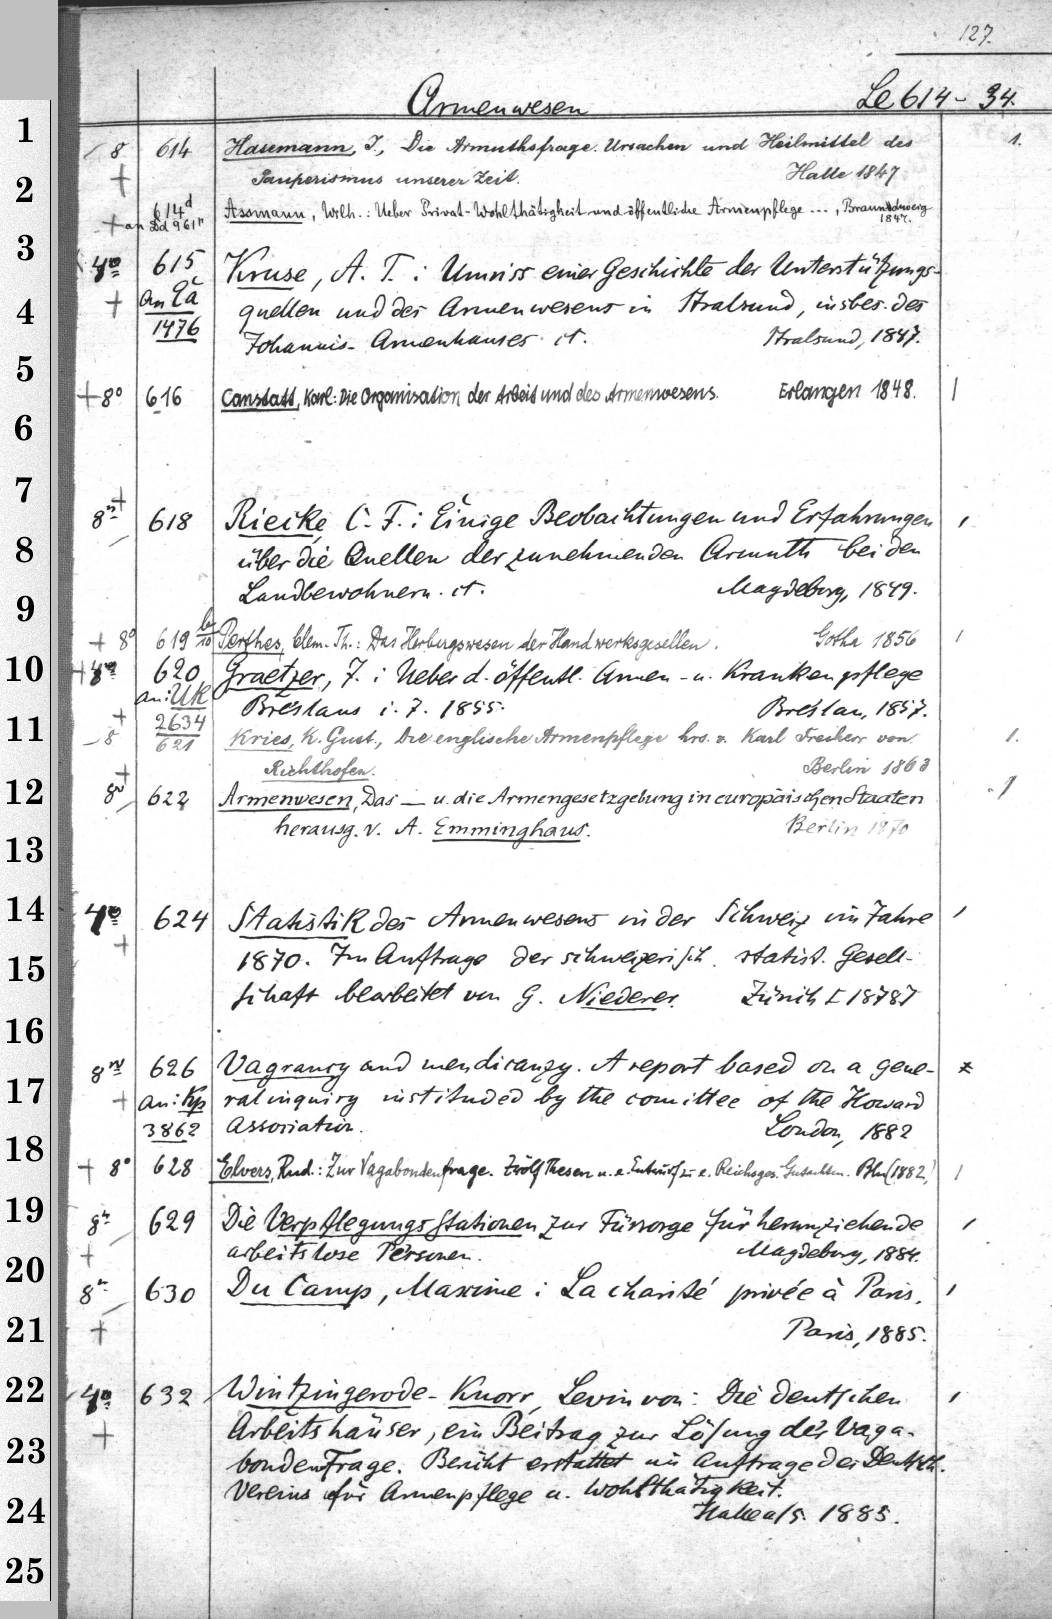 127.
Armenwesen Le 614 - 34.
8 614 Hasemann, J., Die Armuthsfrage. Ursachen und Heilmittel des 1.
+ Pauperismus unserer Zeit. Halle 1847
614d Assmann, Wilh.: Ueber Privat-Wohlthätigkeit und öffentliche Armenpflege ..., Braunschweig
+ an Dd 961n 1847.
4o 615 Kruse, A. T.: Umriss einer Geschichte der Unterstützungs-
+ an Qa quellen und des Armenwesens in Stralsund, insbes. des
1476 Johannis-Armenhauses et. Stralsund, 1847.
+8o 616 Canstatt, Karl: Die Organisation der Arbeit und des Armenwesens. Erlangen 1848. |
+
8o 618 Riecke, C. F.: Einige Beobachtungen und Erfahrungen
über die Quellen der zunehmenden Armuth bei den
Landbewohnern. et. Magdeburg, 1849.
+ 8o 619 Perthes, Clem. Th.: Das Herbergswesen der Handwerksgesellen. Gotha 1856
+4o 620 Graetzer, J.: Ueber d. öffentl. Armen- u. Krankenpflege
an: Uk Breslaus i. J. 1855. Breslau, 1857.
+ 2634
8 621 Kries, K. Gust., Die englische Armenpflege hrs. v. Karl Freiherr von 1.
Richthofen. Berlin 1863
+
8o 622 Armenwesen, Das — u. die Armengesetzgebung in europäischen Staaten 1
herausg. v. A. Emminghaus. Berlin 1870
4o 624 Statistik des Armenwesens in der Schweiz im Jahre
+ 1870. Im Auftrage der schweizerisch. statist. Gesell-
schaft bearbeitet von G. Niederer. Zürich [1878]
8o 626 Vagrancy and mendicanzy. A report based on a gene-
+ an: Kp ral inquiry instituded by the comittee of the Howard
3862 Association. London, 1882
+ 8o 628 Elvers, Rud.: Zur Vagabondenfrage. Zwölf Thesen u. e. Entwurf zu e. Reichsges. Gutachten. Bln (1882) |
8o 629 Die Verpflegungsstationen zur Fürsorge für herumziehende
+ arbeitslose Personen. Magdeburg, 1884.
8o 630 Du Camp, Maxime: La charité privée à Paris.
+ Paris, 1885.
4o 632 Wintzingerode-Knorr, Levin von: Die deutschen
+ Arbeitshäuser, ein Beitrag zur Lösung der Vaga-
bondenfrage. Bericht erstattet im Auftrage des Deutsch.
Vereins für Armenpflege u. Wohlthätigkeit.
Halle a/S. 1885.
1
2
3
4
5
6
7
8
9
10
11
12
13
14
15
16
17
18
19
20
21
22
23
24
25